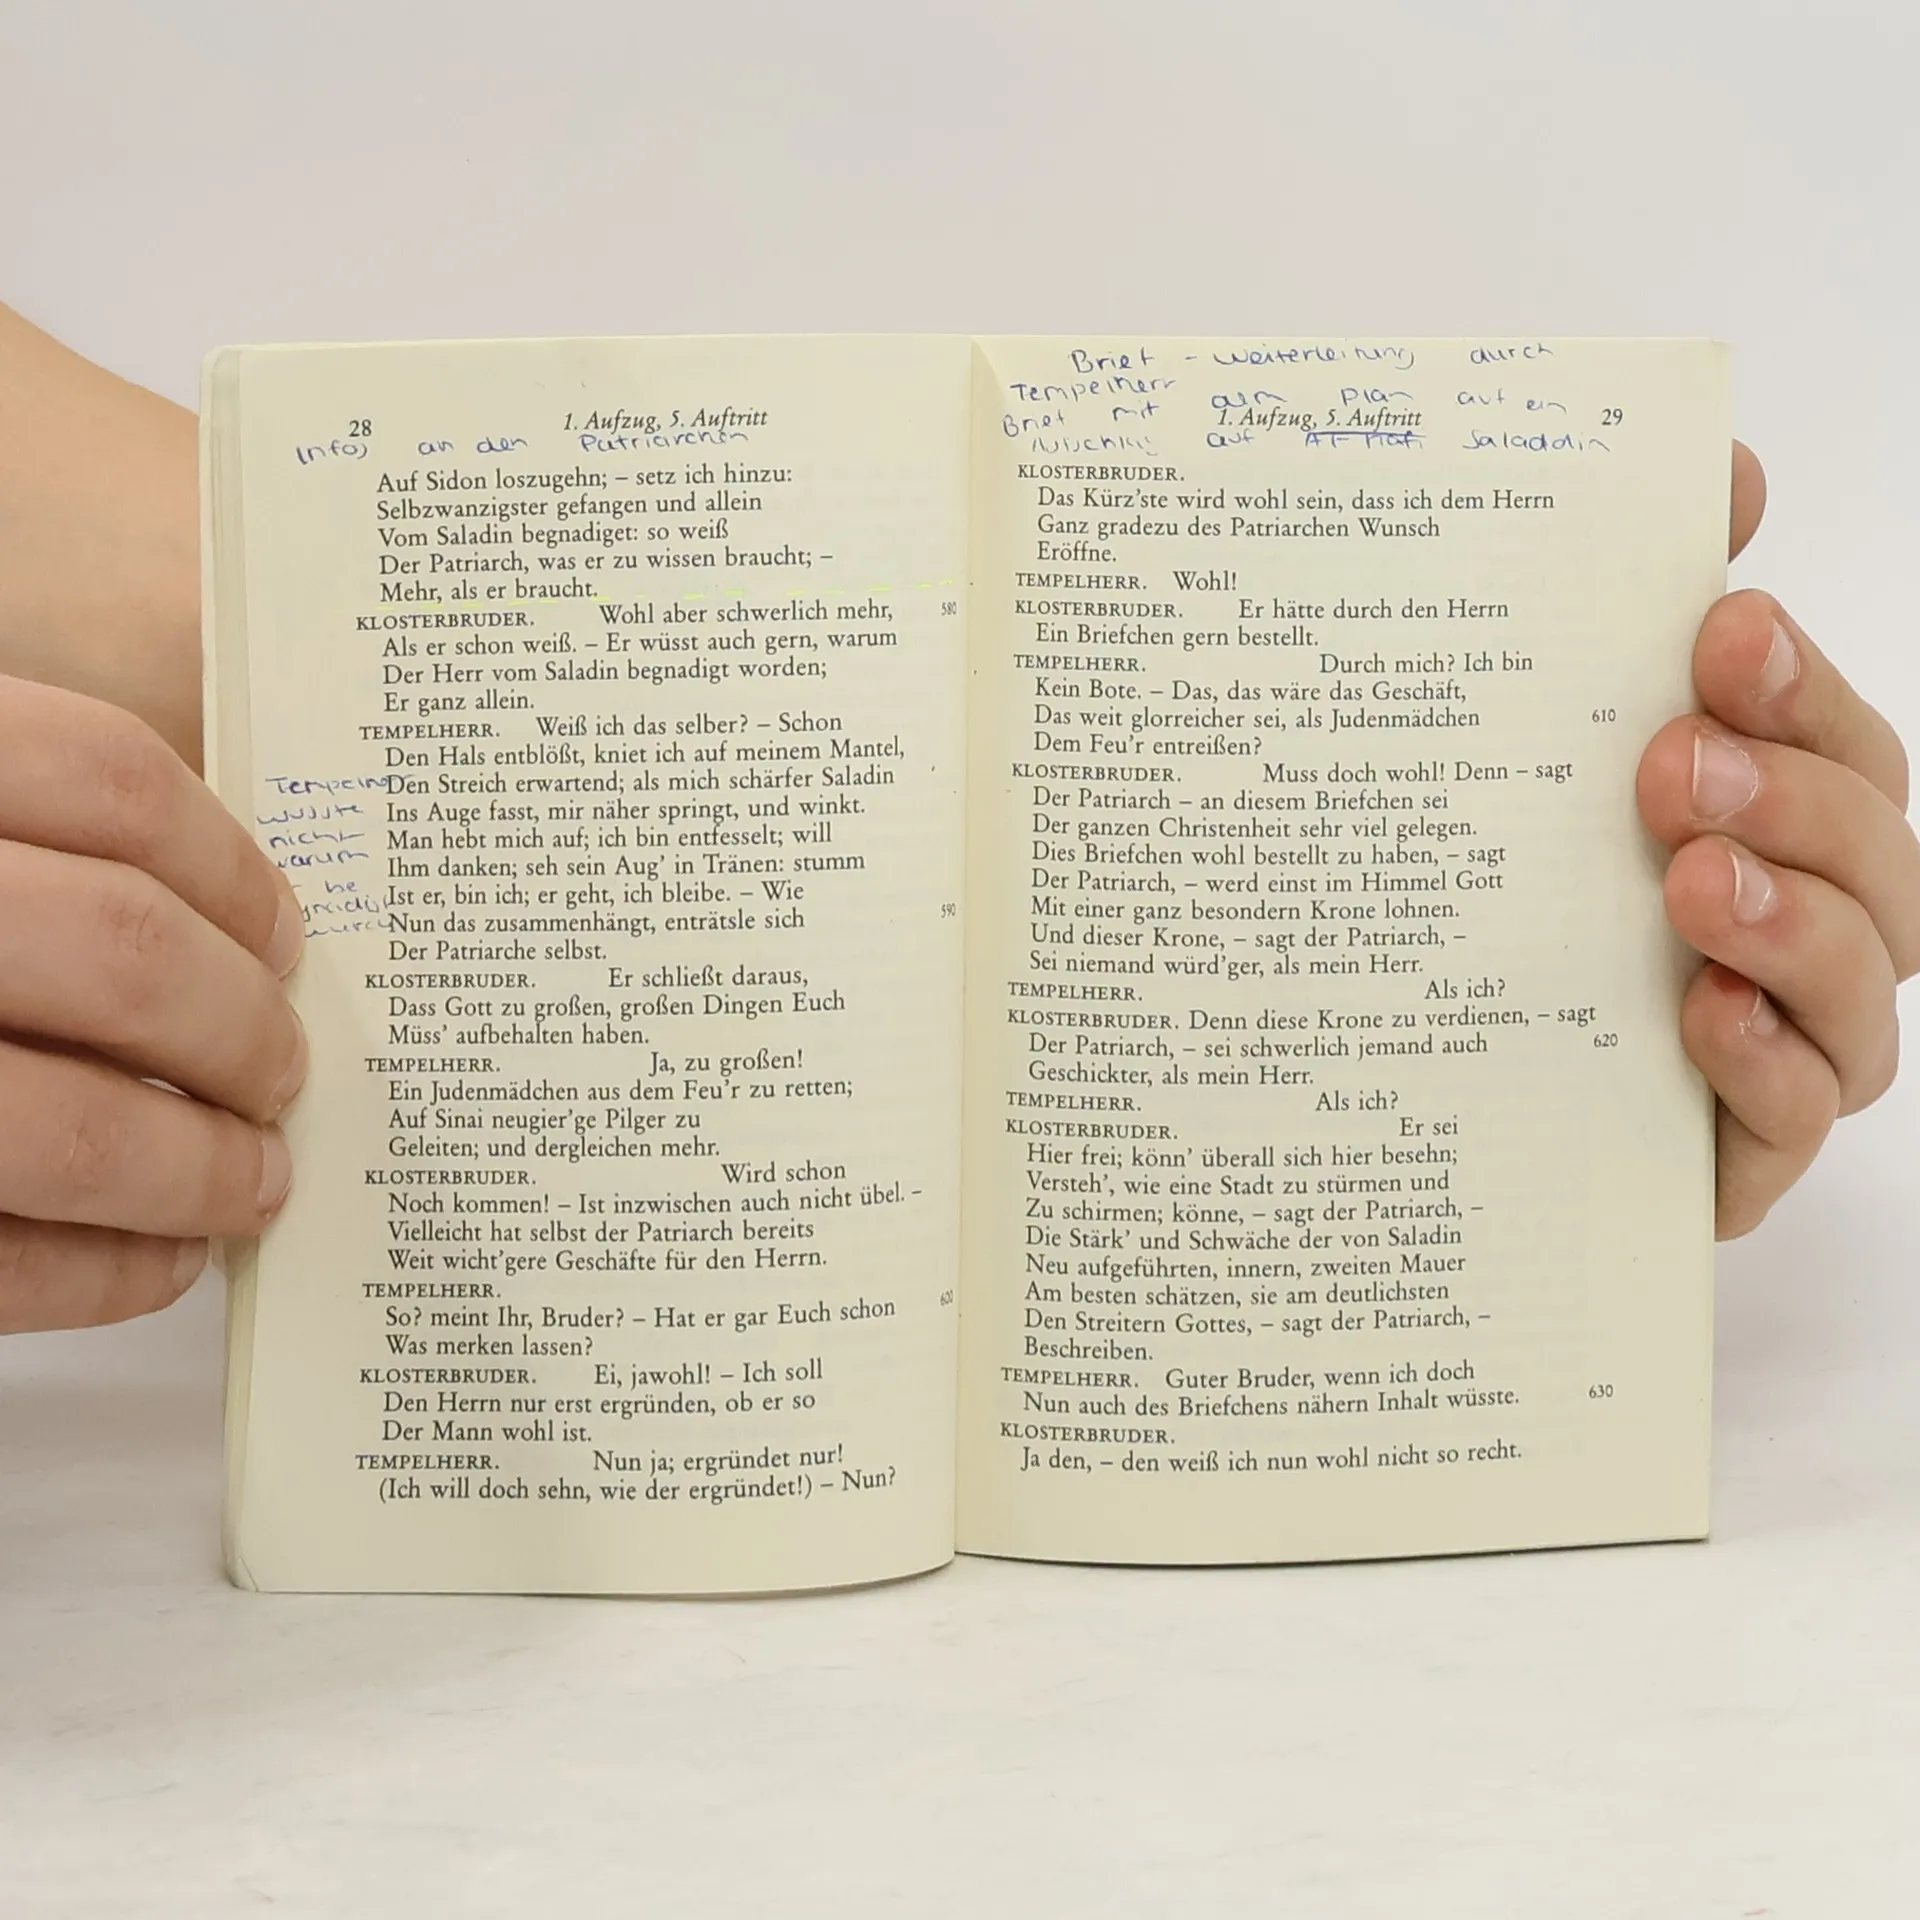 28
1. Aufzug, 5. Auftritt
Infos an den Patriarchen
Auf Sidon loszugehn; – setz ich hinzu:
Selbzwanzigster gefangen und allein
Vom Saladin begnadiget: so weiß
Der Patriarch, was er zu wissen braucht; –
Mehr, als er braucht.
KLOSTERBRUDER. Wohl aber schwerlich mehr, 580
Als er schon weiß. – Er wüsst auch gern, warum
Der Herr vom Saladin begnadigt worden;
Er ganz allein.
TEMPELHERR. Weiß ich das selber? – Schon
Den Hals entblößt, kniet ich auf meinem Mantel,
Den Streich erwartend; als mich schärfer Saladin
Ins Auge fasst, mir näher springt, und winkt.
Man hebt mich auf; ich bin entfesselt; will
Ihm danken; seh sein Aug’ in Tränen: stumm
Ist er, bin ich; er geht, ich bleibe. – Wie
Nun das zusammenhängt, enträtsle sich 590
Der Patriarche selbst.
KLOSTERBRUDER. Er schließt daraus,
Dass Gott zu großen, großen Dingen Euch
Müss’ aufbehalten haben.
TEMPELHERR. Ja, zu großen!
Ein Judenmädchen aus dem Feu’r zu retten;
Auf Sinai neugier’ge Pilger zu
Geleiten; und dergleichen mehr.
KLOSTERBRUDER. Wird schon
Noch kommen! – Ist inzwischen auch nicht übel. –
Vielleicht hat selbst der Patriarch bereits
Weit wicht’gere Geschäfte für den Herrn.
TEMPELHERR.
So? meint Ihr, Bruder? – Hat er gar Euch schon 600
Was merken lassen?
KLOSTERBRUDER. Ei, jawohl! – Ich soll
Den Herrn nur erst ergründen, ob er so
Der Mann wohl ist.
TEMPELHERR. Nun ja; ergründet nur!
(Ich will doch sehn, wie der ergründet!) – Nun?
wusste
nicht
warum
be
Brief - Weiterleitung durch
Tempelherr
Brief mit dem Plan auf ein
1. Aufzug, 5. Auftritt
29
auf Saladdin
KLOSTERBRUDER.
Das Kürz’ste wird wohl sein, dass ich dem Herrn
Ganz gradezu des Patriarchen Wunsch
Eröffne.
TEMPELHERR. Wohl!
KLOSTERBRUDER. Er hätte durch den Herrn
Ein Briefchen gern bestellt.
TEMPELHERR. Durch mich? Ich bin
Kein Bote. – Das, das wäre das Geschäft,
Das weit glorreicher sei, als Judenmädchen 610
Dem Feu’r entreißen?
KLOSTERBRUDER. Muss doch wohl! Denn – sagt
Der Patriarch – an diesem Briefchen sei
Der ganzen Christenheit sehr viel gelegen.
Dies Briefchen wohl bestellt zu haben, – sagt
Der Patriarch, – werd einst im Himmel Gott
Mit einer ganz besondern Krone lohnen.
Und dieser Krone, – sagt der Patriarch, –
Sei niemand würd’ger, als mein Herr.
TEMPELHERR. Als ich?
KLOSTERBRUDER. Denn diese Krone zu verdienen, – sagt
Der Patriarch, – sei schwerlich jemand auch 620
Geschickter, als mein Herr.
TEMPELHERR. Als ich?
KLOSTERBRUDER. Er sei
Hier frei; könn’ überall sich hier besehn;
Versteh’, wie eine Stadt zu stürmen und
Zu schirmen; könne, – sagt der Patriarch, –
Die Stärk’ und Schwäche der von Saladin
Neu aufgeführten, innern, zweiten Mauer
Am besten schätzen, sie am deutlichsten
Den Streitern Gottes, – sagt der Patriarch, –
Beschreiben.
TEMPELHERR. Guter Bruder, wenn ich doch
Nun auch des Briefchens nähern Inhalt wüsste. 630
KLOSTERBRUDER.
Ja den, – den weiß ich nun wohl nicht so recht.